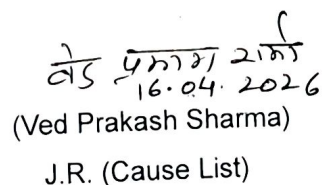 वेद प्रकाश शर्मा
16.04.2026
(Ved Prakash Sharma)
J.R. (Cause List)